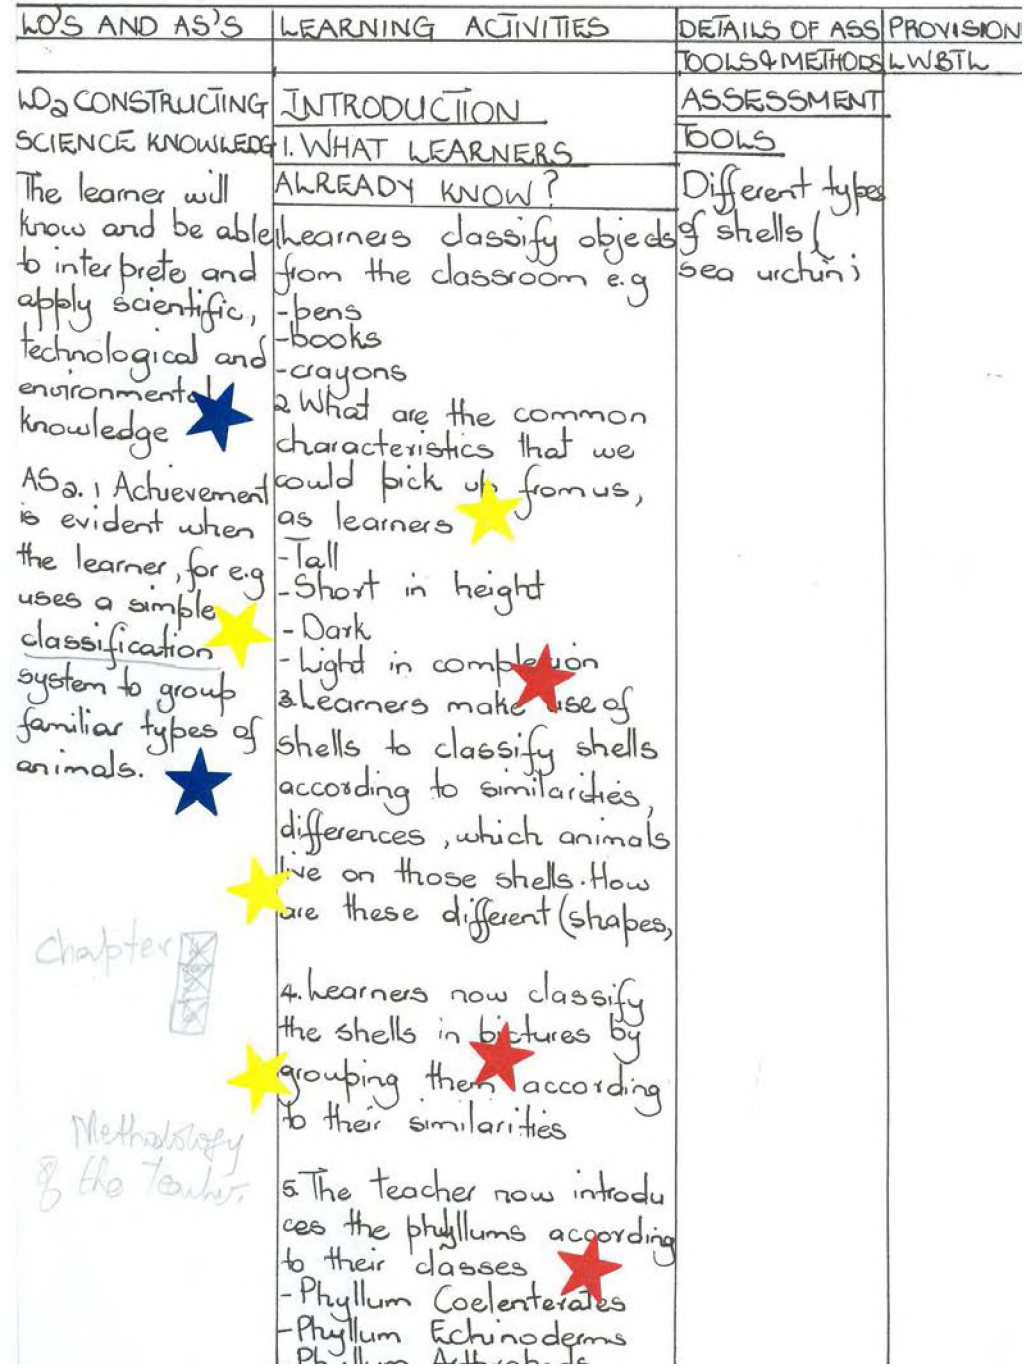 LO'S AND AS'S
LEARNING ACTIVITIES
DETAILS OF ASS
TOOLS & METHODS
PROVISION
LWBTL
LO2 CONSTRUCTING
SCIENCE KNOWLEDG
The learner will
know and be able
to interprete and
apply scientific,
technological and
environmental
knowledge
AS2.1 Achievement
is evident when
the learner, for e.g
uses a simple
classification
system to group
familiar types of
animals.
Chapter
Methodology
of the teacher.
INTRODUCTION
1. WHAT LEARNERS
ALREADY KNOW?
Learners classify objects
from the classroom e.g
-pens
-books
-crayons
2. What are the common
characteristics that we
could pick up from us,
as learners
-Tall
-Short in height
- Dark
- Light in complexion
3. Learners make use of
shells to classify shells
according to similarities,
differences, which animals
live on those shells. How
are these different (shapes,
4. Learners now classify
the shells in pictures by
grouping them according
to their similarities
5. The teacher now introdu
ces the phyllums according
to their classes
- Phyllum Coelenterates
- Phyllum Echinoderms
- Phyllum Arthropods
ASSESSMENT
TOOLS
Different types
of shells (
sea urchin;